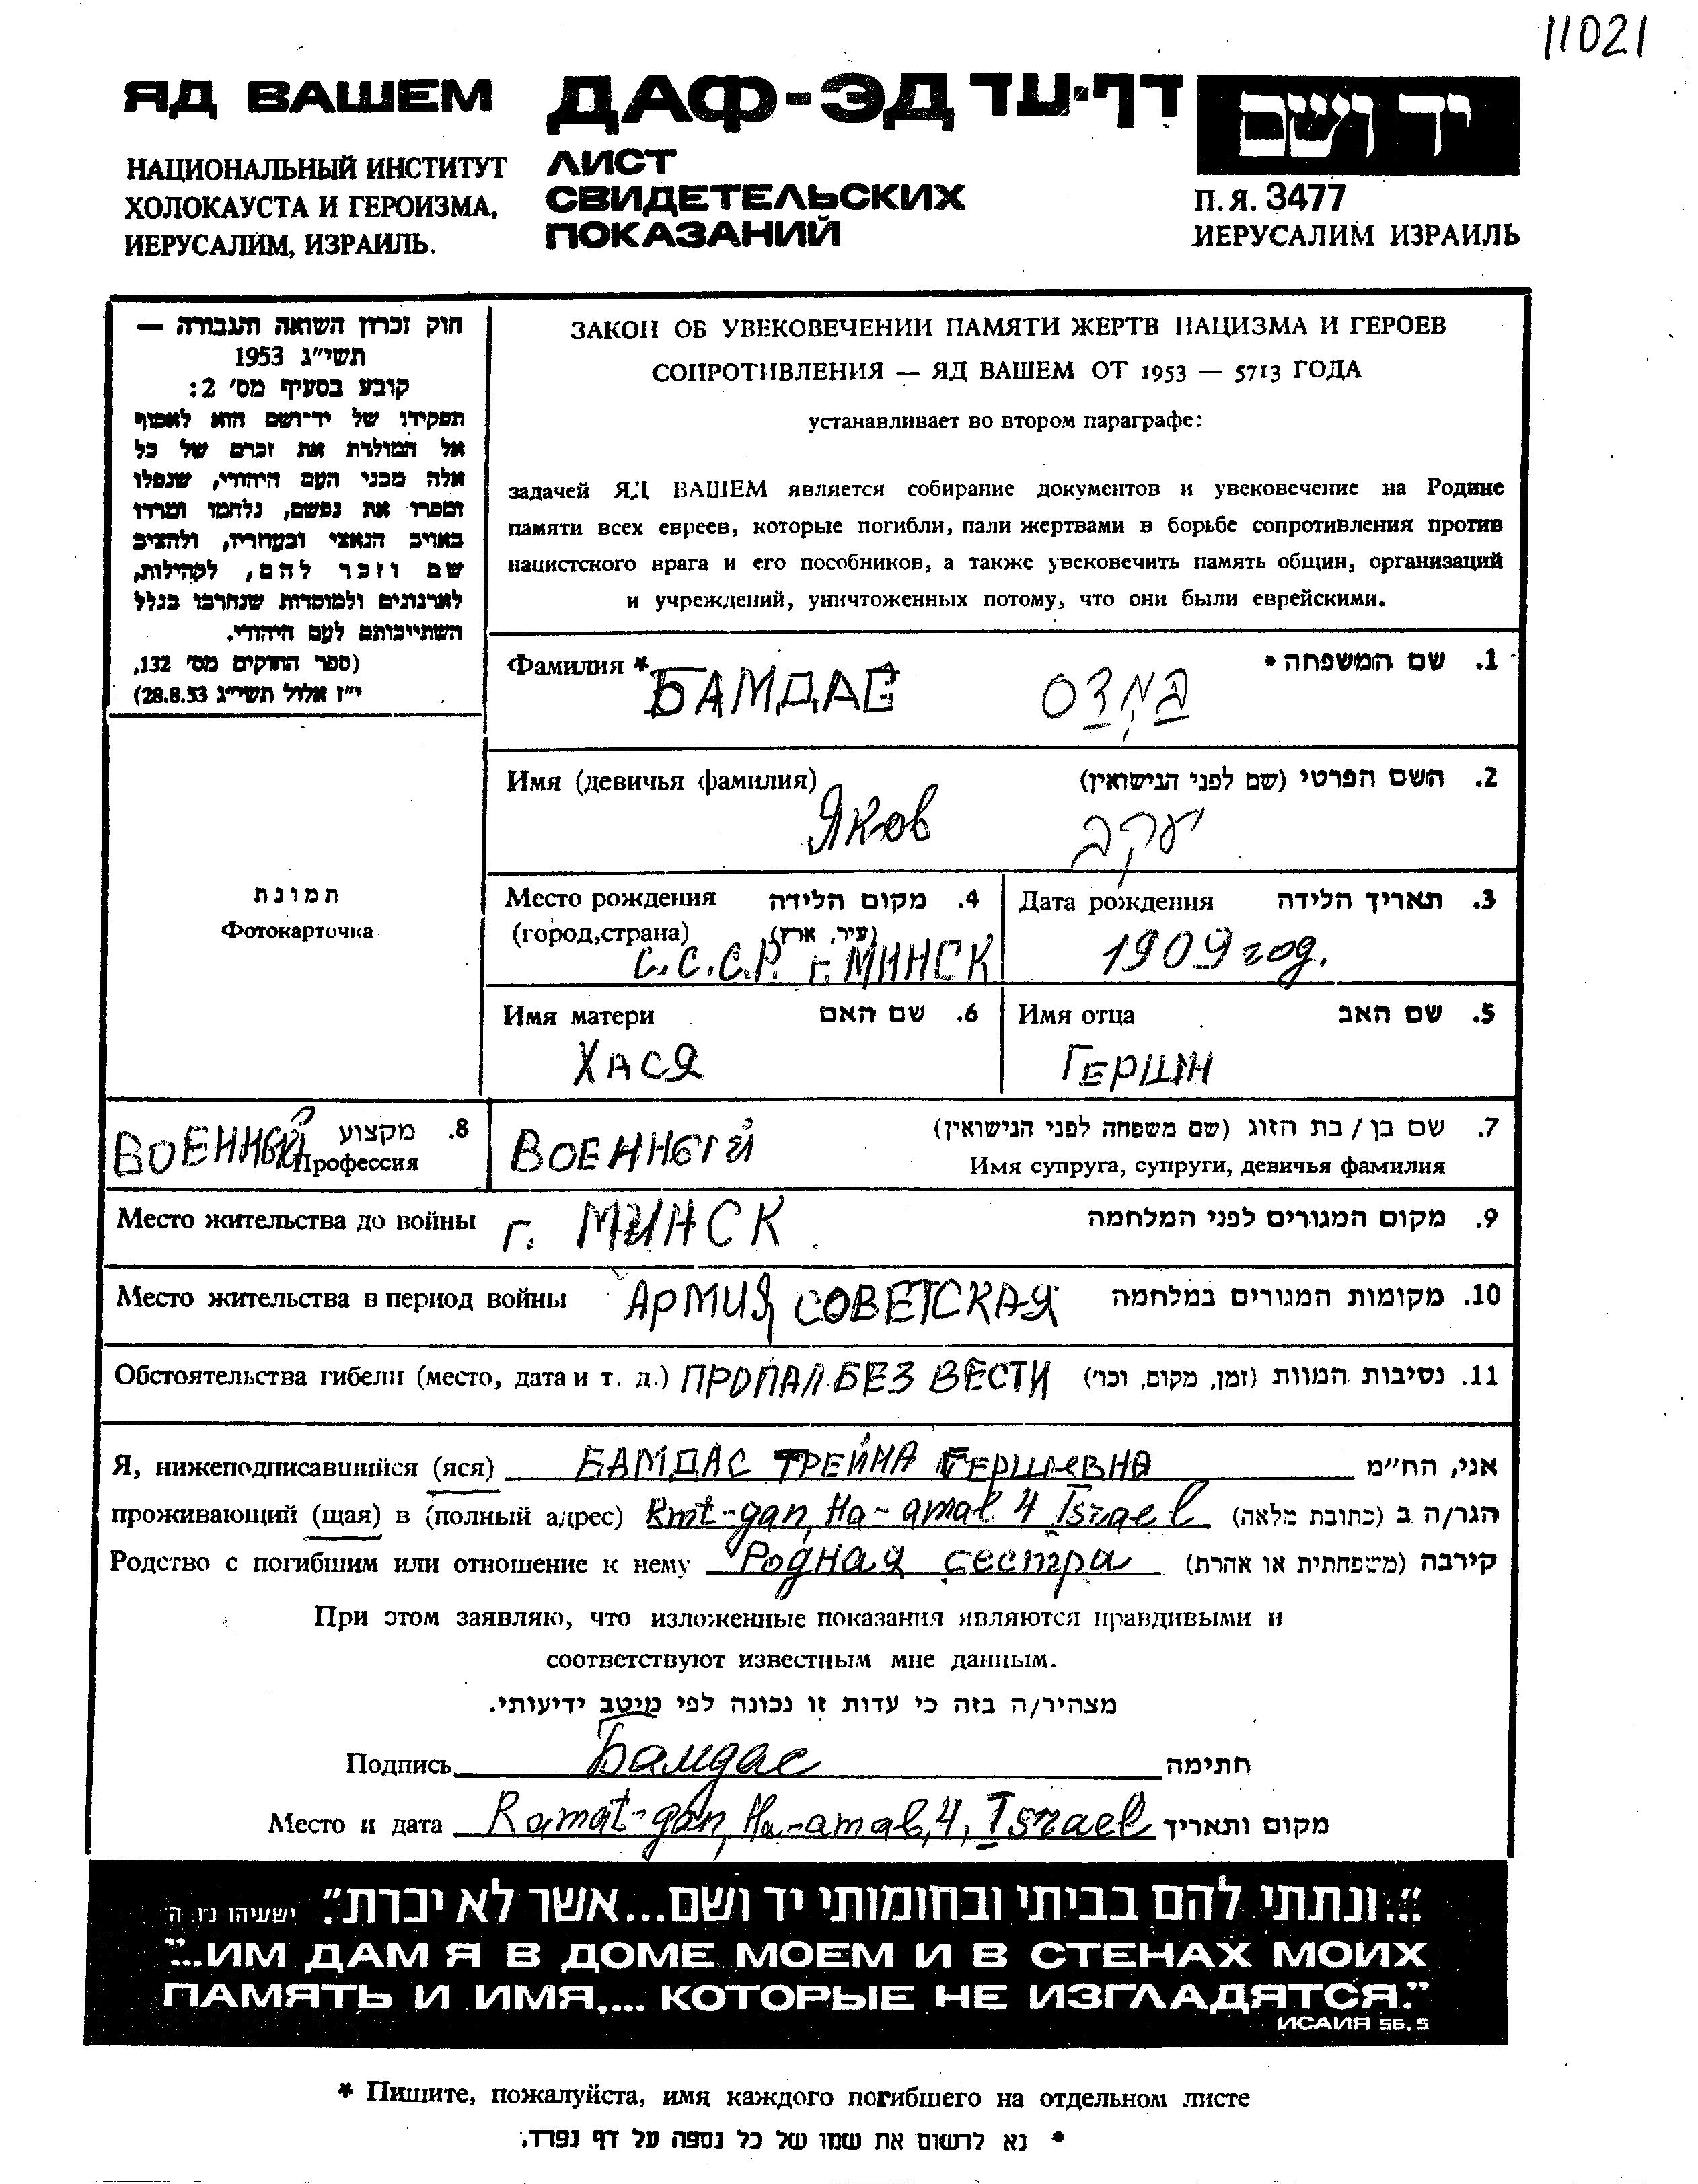 11021
ЯД ВАШЕМ ДАФ-ЭД דף-עד יד ושם
НАЦИОНАЛЬНЫЙ ИНСТИТУТ
ХОЛОКАУСТА И ГЕРОИЗМА,
ИЕРУСАЛИМ, ИЗРАИЛЬ.
ЛИСТ
СВИДЕТЕЛЬСКИХ
ПОКАЗАНИЙ
П.Я. 3477
ИЕРУСАЛИМ ИЗРАИЛЬ
חוק זכרון השואה והגבורה —
תשי"ג 1953
קובע בסעיף מס' 2:
תפקידו של יד-ושם הוא לאסוף
אל המולדת את זכרם של כל
אלה מבני העם היהודי, שנפלו
ומסרו את נפשם, נלחמו ומרדו
באויב הנאצי ובעוזריו, ולהציב
שם וזכר להם, לקהילות,
לארגונים ולמוסדות שנחרבו בגלל
השתייכותם לעם היהודי.
(ספר החוקים מס' 132,
י"ז אלול תשי"ג 28.8.53)
ЗАКОН ОБ УВЕКОВЕЧЕНИИ ПАМЯТИ ЖЕРТВ НАЦИЗМА И ГЕРОЕВ
СОПРОТИВЛЕНИЯ — ЯД ВАШЕМ ОТ 1953 — 5713 ГОДА
устанавливает во втором параграфе:
задачей ЯД ВАШЕМ является собирание документов и увековечение на Родине
памяти всех евреев, которые погибли, пали жертвами в борьбе сопротивления против
нацистского врага и его пособников, а также увековечить память общин, организаций
и учреждений, уничтоженных потому, что они были еврейскими.
Фамилия * 1. שם המשפחה *
БАМДАС במדס
Имя (девичья фамилия) 2. השם הפרטי (שם לפני הנישואין)
Яков יעקב
תמונת
Фотокарточка
Место рождения 4. מקום הלידה
(город,страна) (עיר, ארץ)
С.С.С.Р. г. МИНСК
Дата рождения 3. תאריך הלידה
1909 год.
Имя матери 6. שם האם
ХАСЯ
Имя отца 5. שם האב
ГЕРШН
8. מקצוע
ВОЕННЫЙ Профессия
ВОЕННЫЙ 7. שם בן / בת הזוג (שם משפחה לפני הנישואין)
Имя супруга, супруги, девичья фамилия
Место жительства до войны г. МИНСК 9. מקום המגורים לפני המלחמה
Место жительства в период войны АРМИЯ СОВЕТСКАЯ 10. מקומות המגורים במלחמה
Обстоятельства гибели (место, дата и т. д.) ПРОПАЛ БЕЗ ВЕСТИ 11. נסיבות המוות (זמן, מקום, וכו')
Я, нижеподписавшийся (яся) БАМДАС ТРЕЙНА ГЕРШЕВНА אני, הח"מ
проживающий (щая) в (полный адрес) Rmt-gan, Ha-amal 4 Israel הגר/ה ב (כתובת מלאה)
Родство с погибшим или отношение к нему Родная сестра קירבה (משפחתית או אחרת)
При этом заявляю, что изложенные показания являются правдивыми и
соответствуют известным мне данным.
מצהיר/ה בזה כי עדות זו נכונה לפי מיטב ידיעותי.
Подпись Бамдас חתימה
Место и дата Ramat-gan, Ha-amal, 4, Israel מקום ותאריך
"...ונתתי להם בביתי ובחומותי יד ושם...אשר לא יכרת". ישעיהו נו. ה
"...ИМ ДАМ Я В ДОМЕ МОЕМ И В СТЕНАХ МОИХ
ПАМЯТЬ И ИМЯ,... КОТОРЫЕ НЕ ИЗГЛАДЯТСЯ."
ИСАИЯ 56, 5
* Пишите, пожалуйста, имя каждого погибшего на отдельном листе
* נא לרשום את שמו של כל נספה על דף נפרד.